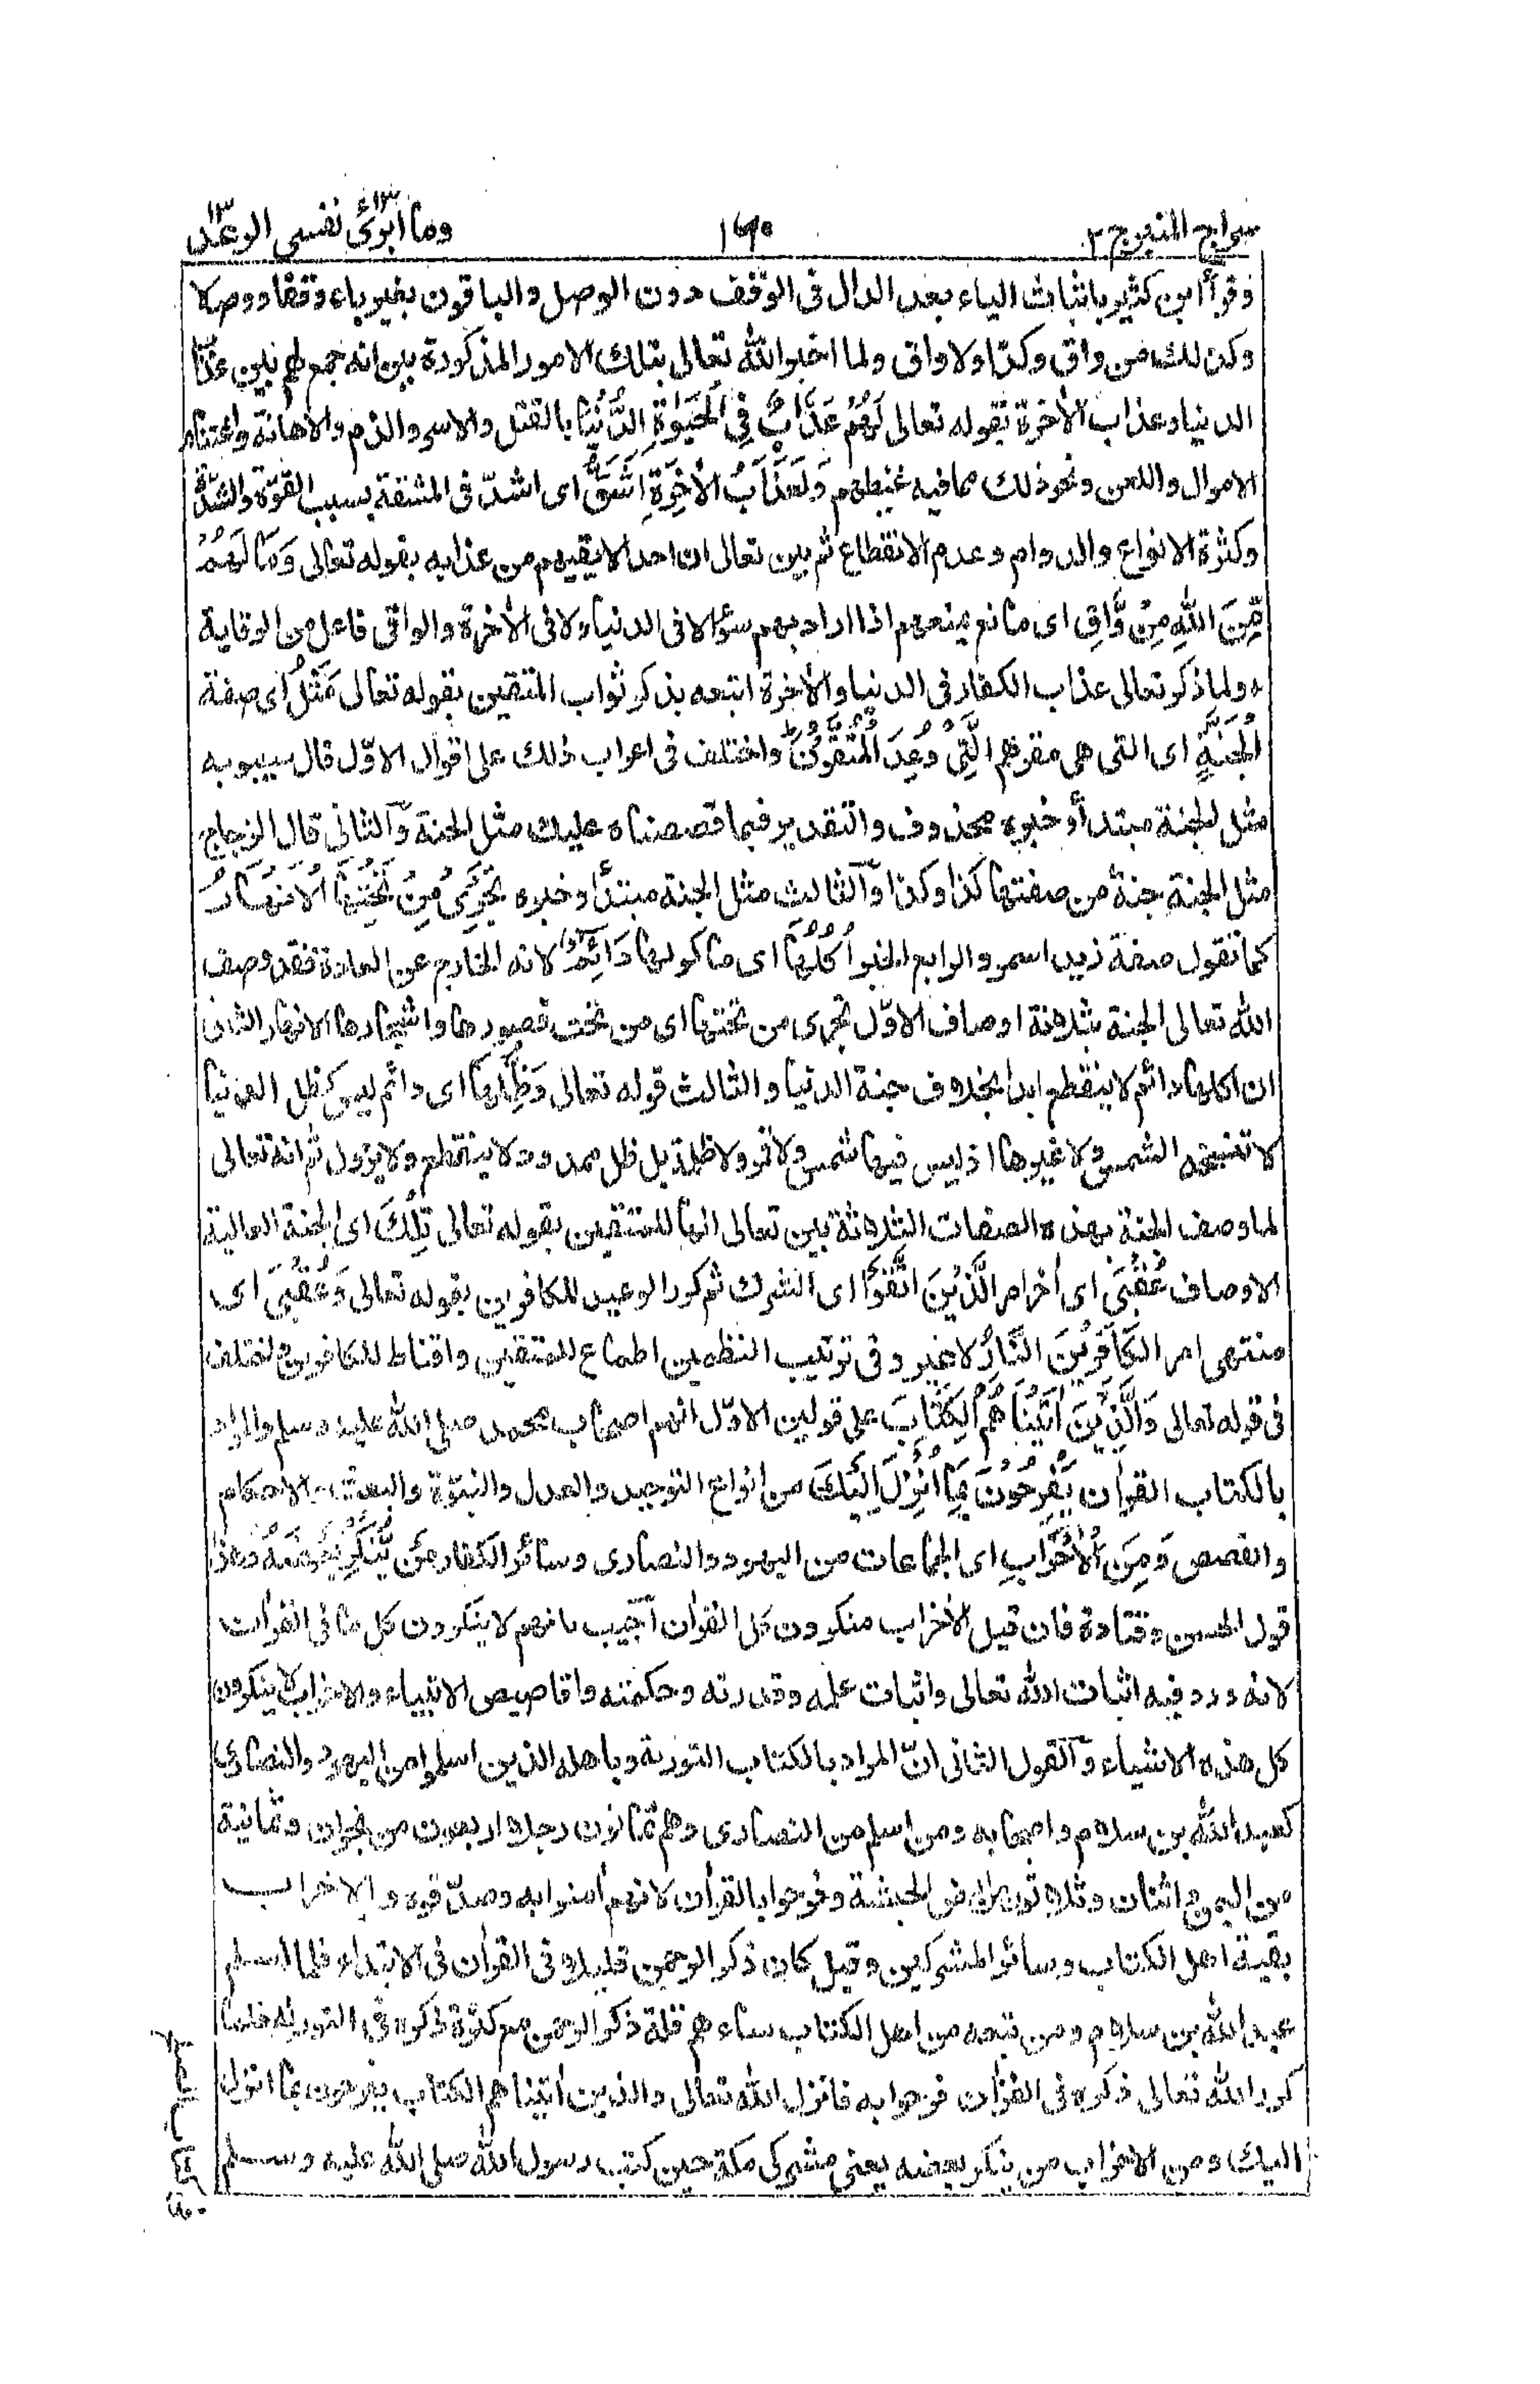 سراج المنير ج ٢
١٦٥
وما ابرئ نفسی ١٣ الرعد ١٣
وقرأ ابن كثير باثبات الياء بعد الدال فى الوقف دون الوصل والباقون بغير ياء وقفا ووصلا
وكذلك من واق وكذا ولا واق ولما اخبر الله تعالى بتلك الامور المذكورة بين انه جمع لهم بين عذاب
الدنيا وعذاب الأخرة بقوله تعالى لَهُمْ عَذَابٌ فِي الْحَيٰوةِ الدُّنْيَا بالقتل والاسر والذم والاهانة واغتنام
الاموال واللعن ونحو ذلك مما فيه غيظهم وَلَعَذَابُ الْأٰخِرَةِ اَشَقُّ اى اشدّ فى المشقة بسبب القوّة والشدّة
وكثرة الانواع والدوام وعدم الانقطاع ثم بين تعالى ان احدا لا يقيهم من عذابه بقوله تعالى وَمَا لَهُمْ
مِّنَ اللهِ مِنْ وَّاقٍ اى مانع يمنعهم اذا اراد بهم سؤا لا فى الدنيا ولا فى الأخرة والواقى فاعل من الوقاية
ه ولما ذكر تعالى عذاب الكفار فى الدنيا والأخرة اتبعه بذكر ثواب المتقين بقوله تعالى مَثَلُ اى صفة
الْجَنَّةِ اى التى هى مقرهم الَّتِىْ وُعِدَ الْمُتَّقُوْنَ واختلف فى اعراب ذلك على اقوال الاوّل قال سيبويه
مثل الجنة مبتدأ وخبره محذوف والتقدير فيما قصصناه عليك مثل الجنة وآلثانى قال الزجاج
مثل الجنة جنة من صفتها كذا وكذا وآلثالث مثل الجنة مبتدأ وخبره تَجْرِىْ مِنْ تَحْتِهَا الْاَنْهَارُ
كما تقول صفة زيد اسمر والرابع الخبر اُكُلُهَا اى ماكولها دَائِمٌ لانه الخارج عن العادة فقد وصف
الله تعالى الجنة بثلاثة اوصاف الاوّل تجرى من تحتها اى من تحت قصورها واشجارها الانهار الثانى
ان اكلها دائم لا ينقطع ابدا بخلاف جنة الدنيا والثالث قوله تعالى وَظِلُّهَا اى دائم ليس كظل الدنيا
لا تنسخه الشمس ولا غيرها اذ ليس فيها شمس ولا قمر ولا ظلمة بل ظل ممدود لا ينقطع ولا يزول ثم انه تعالى
لما وصف الجنة بهذه الصفات الثلاثة بين تعالى انها للمتقين بقوله تعالى تِلْكَ اى الجنة العالية
الاوصاف عُقْبَى اى أخر امر الَّذِيْنَ اتَّقَوْا اى الشرك ثم كرر الوعيد للكافرين بقوله تعالى وَعُقْبَى اى
منتهى امر الْكَافِرِيْنَ النَّارُ لا غير وفى ترتيب النظمين اطماع للمتقين واقناط للكافرين واختلف
فى قوله تعالى وَالَّذِيْنَ اٰتَيْنَاهُمُ الْكِتَابَ على قولين الاوّل انهم اصحاب محمد صلى الله عليه وسلم والمراد
بالكتاب القرأن يَفْرَحُوْنَ بِمَا اُنْزِلَ اِلَيْكَ من انواع التوحيد والعدل والنبوّة والبعث والاحكام
والقصص وَمِنَ الْاَحْزَابِ اى الجماعات من اليهود والنصارى وسائر الكفار مَنْ يُّنْكِرُ بَعْضَهُ وهذا
قول الحسن وقتادة فان قيل الاحزاب منكرون كل القرأن آجيب بانهم لا ينكرون كل ما فى القرأن
لانه ورد فيه اثبات الله تعالى واثبات علمه وقدرته وحكمته واقاصيص الانبياء والاحزاب لا ينكرون
كل هذه الاشياء وآلقول الثانى انّ المراد بالكتاب التورية وباهله الذين اسلموا من اليهود والنصارى
كعبد الله بن سلام واصحابه ومن اسلم من النصارى وهم ثمانون رجلا اربعون من نجران وثمانية
من اليمن واثنان وثلاثون من الحبشة وفرحوا بالقرأن لانهم أمنوا به وصدّقوه والاحزاب
بقية اهل الكتاب وسائر المشركين وقيل كان ذكر الرحمن قليلا فى القرأن فى الابتداء فلما اسلم
عبد الله بن سلام ومن تبعه من اهل الكتاب ساءهم قلة ذكر الرحمن مع كثرة ذكره فى التورية فلما
كرر الله تعالى ذكره فى القرأن فرحوا به فانزل الله تعالى والذين أتيناهم الكتاب يفرحون بما انزل
اليك ومن الاحزاب من ينكر بعضه يعنى مشركى مكة حين كتب رسول الله صلى الله عليه وسلم